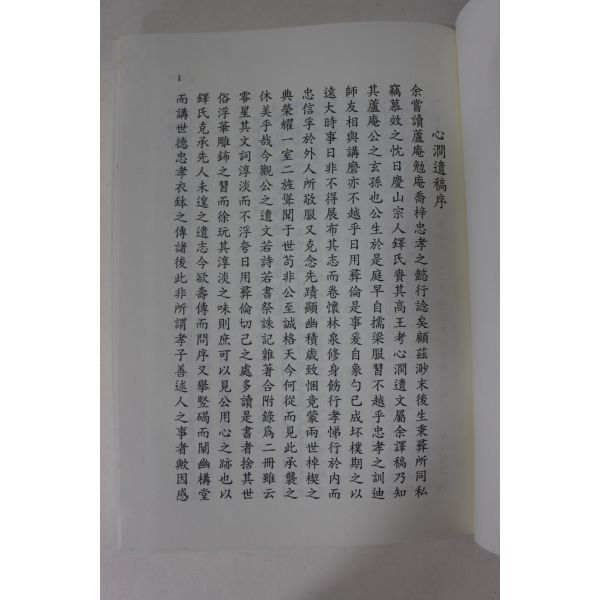 心澗遺稿序
余嘗讀蘆庵勉庵喬梓忠孝之懿行諗矣顧茲渺末後生秉彛所同私
竊慕效之忱日慶山宗人鐸氏賷其高王考心澗遺文屬余譯稿乃知
其蘆庵公之玄孫也公生於是庭早自擩梁服習不越乎忠孝之訓迪
師友相與講磨亦不越乎日用彛倫是事爰自象勺已成坯樸期之以
遠大時事日非不得展布其志而卷懷林泉修身飭行孝悌行於內而
忠信孚於外人所敬服又克念先蹟顯幽積歲致悃竟蒙兩世棹楔之
典榮耀一室二旌聳聞于世苟非公至誠格天今何從而見此承襲之
休美乎哉今觀公之遺文若詩若書祭誄記雜著合附錄爲二冊雖云
零星其文詞淳淡而不浮夸日用彛倫切己之處多讀是書者捨其世
俗浮華雕餙之習而徐玩其淳淡之味則庶可以見公用心之跡也以
鐸氏克承先人未遑之遺志今欲壽傳而問序又擧竪碣而闡幽構堂
而講世德忠孝衣鉢之傳諸後此非所謂孝子善述人之事者歟因感
1